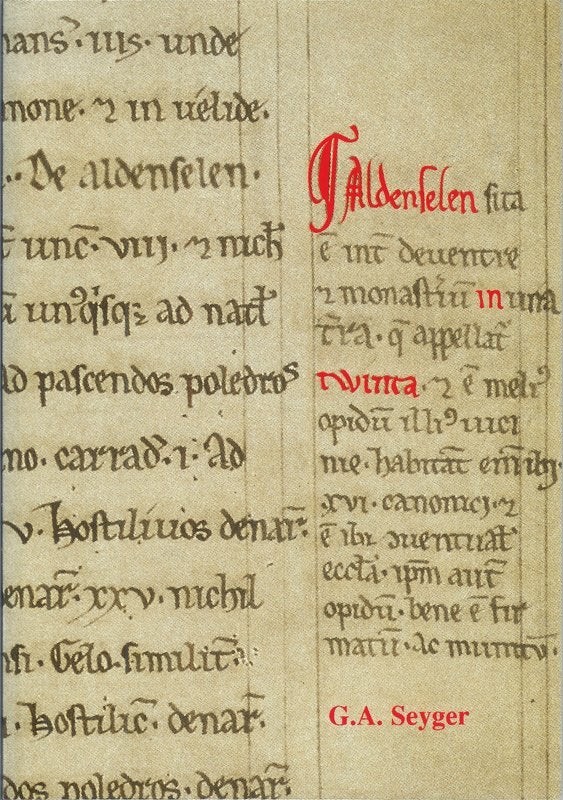 nans̄·iiis·unde
mone·⁊ in uelide.
..De aldenselen.
unc̄·viij·⁊ nich̄
un⁹q̇sqꝫ ad natł
ad pascendos poledros
no·carrad̄·i·Ad
v·hostiliuos denar̄·
enar̄·xxv·nichil
si·Gelo·similit̄·
hostilic̄·denar̄·
dos poledros·denar̄·
Aldenselen sita
ē int̄ deuentre
⁊ monast̄iū in una
t̄ra·q̄ appellat̄
twinta·⁊ ē meli⁹
opidū illi⁹ uici
nie·habitāt em̄ ibi
xvi·canonici·⁊
ē ibi
eccła·ip̄m aut̄
opidū·bene ē fir
matū·ac munitū·
G.A. Seyger